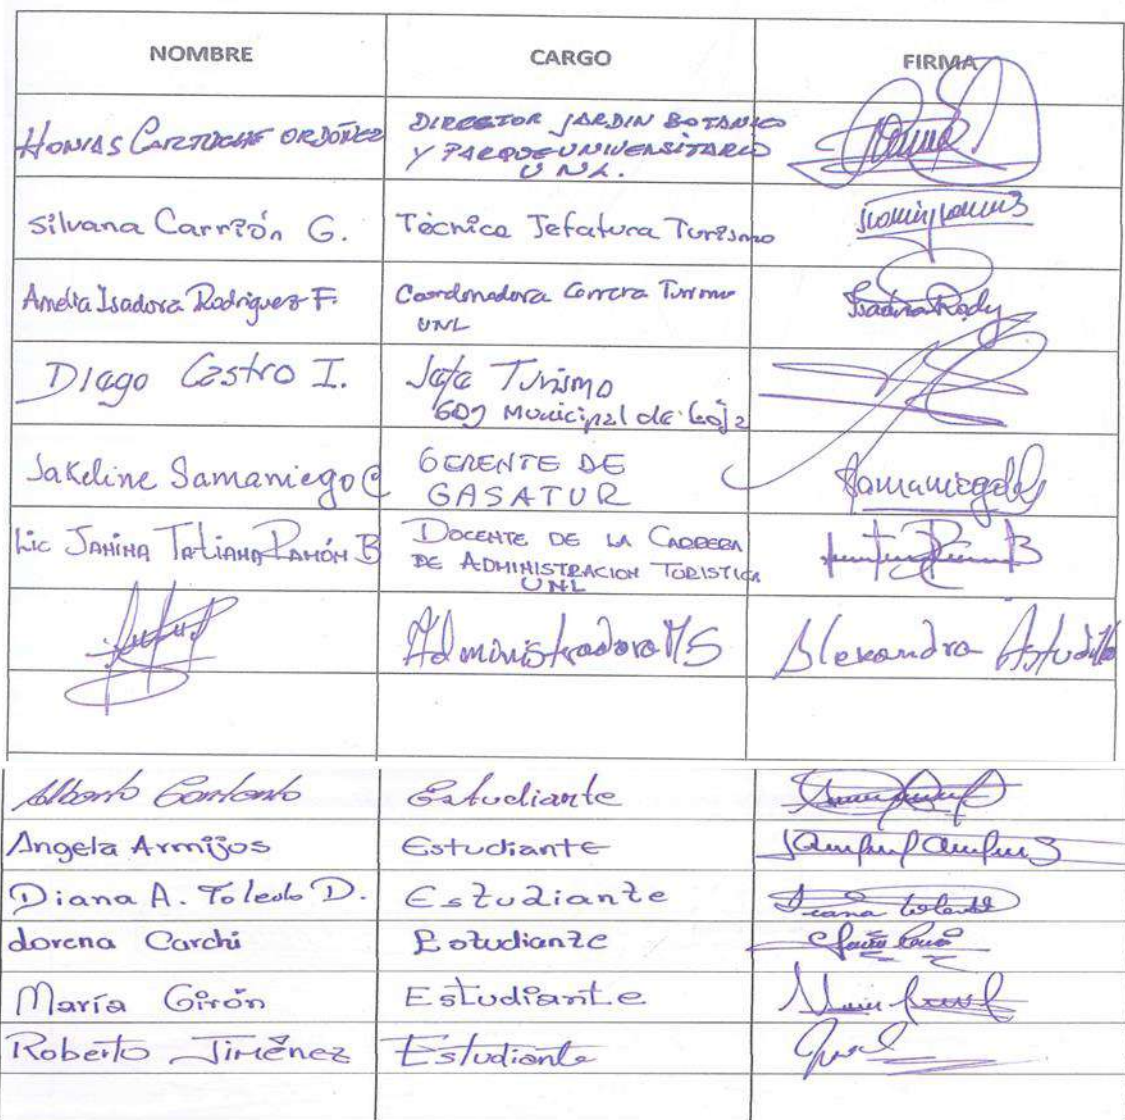 NOMBRE CARGO FIRMA
HONIAS CARTUCHE ORDÓÑEZ DIRECTOR JARDIN BOTANICO
Y PARQUE UNIVERSITARIO
UNL.
Silvana Carrión G. Técnica Jefatura Turismo
Amelia Isadora Rodriguez F. Coordinadora Carrera Turismo
UNL
Isadora Rody
Diego Castro I. Jefe Turismo
Municipal de Loja
Jakeline Samaniego C GERENTE DE
GASATUR
Lic JANINA TATIANA RAMÓN B DOCENTE DE LA CARRERA
DE ADMINISTRACION TURISTICA
UNL
Administradora MS Alexandra Astudillo
Alberto Estudiante
Angela Armijos Estudiante
Diana A. Toledo D. Estudiante
Lorena Carchi Estudiante
María Girón Estudiante
Roberto Jiménez Estudiante